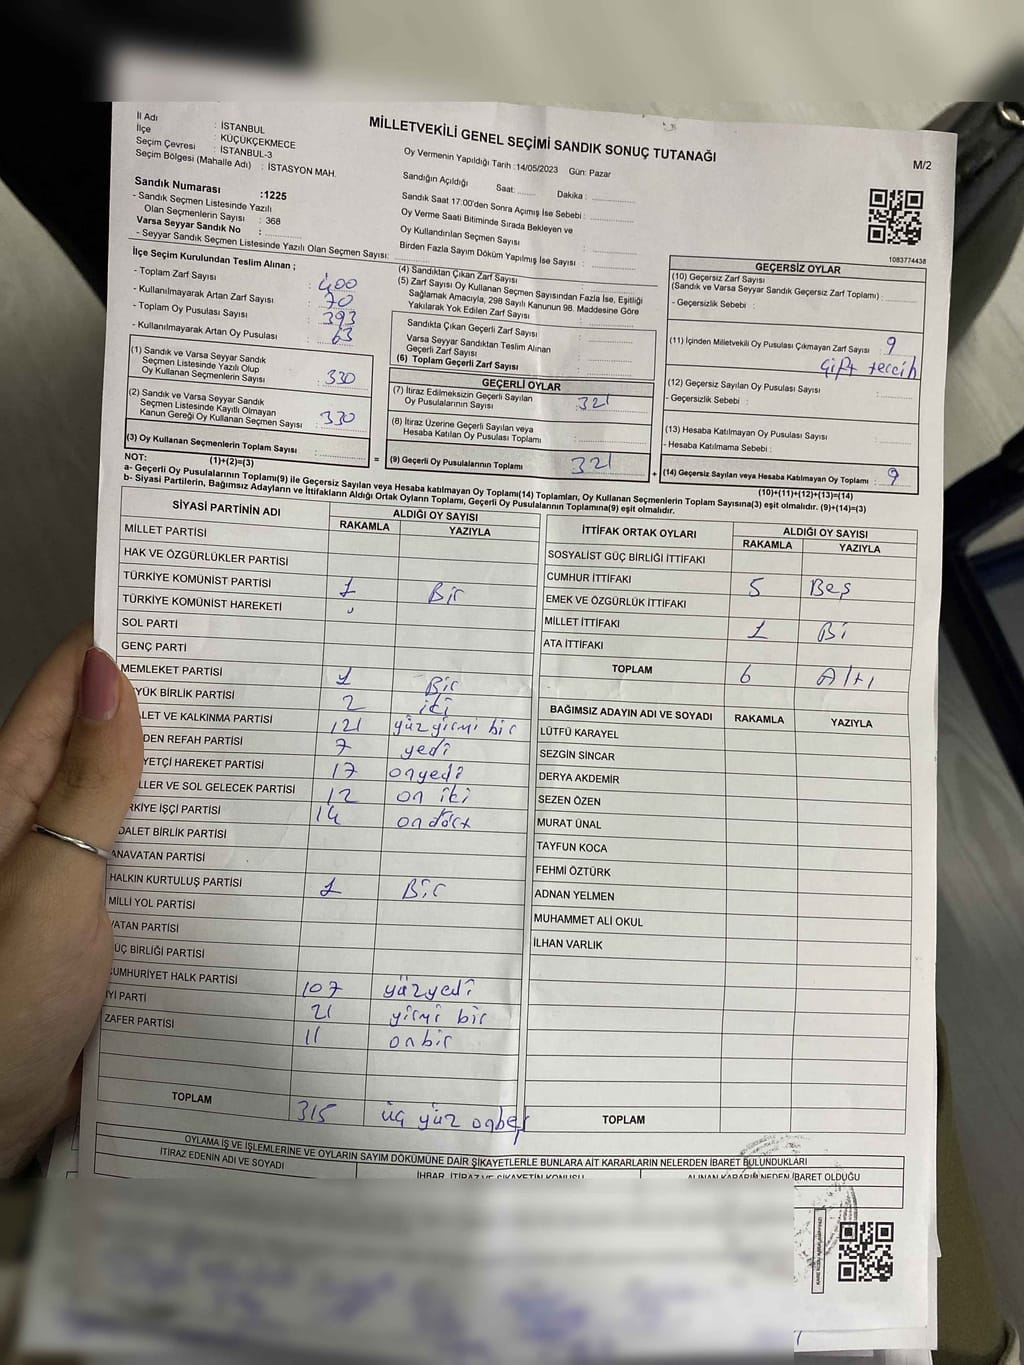 MİLLETVEKİLİ GENEL SEÇİMİ SANDIK SONUÇ TUTANAĞI
M/2
İl Adı : İSTANBUL
İlçe : KÜÇÜKÇEKMECE
Seçim Çevresi : İSTANBUL-3
Seçim Bölgesi (Mahalle Adı) : İSTASYON MAH.
Sandık Numarası :1225
- Sandık Seçmen Listesinde Yazılı
Olan Seçmenlerin Sayısı : 368
Varsa Seyyar Sandık No :
- Seyyar Sandık Seçmen Listesinde Yazılı Olan Seçmen Sayısı:
Oy Vermenin Yapıldığı Tarih :14/05/2023 Gün: Pazar
Sandığın Açıldığı Saat: Dakika :
Sandık Saat 17:00'den Sonra Açılmış İse Sebebi :
Oy Verme Saati Bitiminde Sırada Bekleyen ve
Oy Kullandırılan Seçmen Sayısı :
Birden Fazla Sayım Döküm Yapılmış İse Sayısı :
1083774438
İlçe Seçim Kurulundan Teslim Alınan ;
- Toplam Zarf Sayısı : 400
- Kullanılmayarak Artan Zarf Sayısı : 70
- Toplam Oy Pusulası Sayısı : 393
- Kullanılmayarak Artan Oy Pusulası : 63
(1) Sandık ve Varsa Seyyar Sandık
Seçmen Listesinde Yazılı Olup
Oy Kullanan Seçmenlerin Sayısı : 330
(2) Sandık ve Varsa Seyyar Sandık
Seçmen Listesinde Kayıtlı Olmayan
Kanun Gereği Oy Kullanan Seçmen Sayısı : 330
(3) Oy Kullanan Seçmenlerin Toplam Sayısı :
(1)+(2)=(3)
(4) Sandıktan Çıkan Zarf Sayısı :
(5) Zarf Sayısı Oy Kullanan Seçmen Sayısından Fazla İse, Eşitliği
Sağlamak Amacıyla, 298 Sayılı Kanunun 98. Maddesine Göre
Yakılarak Yok Edilen Zarf Sayısı :
Sandıkta Çıkan Geçerli Zarf Sayısı :
Varsa Seyyar Sandıktan Teslim Alınan
Geçerli Zarf Sayısı :
(6) Toplam Geçerli Zarf Sayısı :
GEÇERLİ OYLAR
(7) İtiraz Edilmeksizin Geçerli Sayılan
Oy Pusulalarının Sayısı : 321
(8) İtiraz Üzerine Geçerli Sayılan veya
Hesaba Katılan Oy Pusulası Toplamı :
= (9) Geçerli Oy Pusulalarının Toplamı 321
GEÇERSİZ OYLAR
(10) Geçersiz Zarf Sayısı
(Sandık ve Varsa Seyyar Sandık Geçersiz Zarf Toplamı) :
- Geçersizlik Sebebi :
(11) İçinden Milletvekili Oy Pusulası Çıkmayan Zarf Sayısı : 9
Çift tercih
(12) Geçersiz Sayılan Oy Pusulası Sayısı :
- Geçersizlik Sebebi :
(13) Hesaba Katılmayan Oy Pusulası Sayısı :
- Hesaba Katılmama Sebebi :
+ (14) Geçersiz Sayılan veya Hesaba Katılmayan Oy Toplamı : 9
(10)+(11)+(12)+(13)=(14)
NOT:
a- Geçerli Oy Pusulalarının Toplamı(9) ile Geçersiz Sayılan veya Hesaba katılmayan Oy Toplamı(14) Toplamları, Oy Kullanan Seçmenlerin Toplam Sayısına(3) eşit olmalıdır. (9)+(14)=(3)
b- Siyasi Partilerin, Bağımsız Adayların ve İttifakların Aldığı Ortak Oyların Toplamı, Geçerli Oy Pusulalarının Toplamına(9) eşit olmalıdır.
SİYASİ PARTİNİN ADI ALDIĞI OY SAYISI
RAKAMLA YAZIYLA
MİLLET PARTİSİ
HAK VE ÖZGÜRLÜKLER PARTİSİ
TÜRKİYE KOMÜNİST PARTİSİ 1 Bir
TÜRKİYE KOMÜNİST HAREKETİ
SOL PARTİ
GENÇ PARTİ
MEMLEKET PARTİSİ 1 Bir
YÜK BİRLİK PARTİSİ 2 iki
LET VE KALKINMA PARTİSİ 121 yüz yirmi bir
DEN REFAH PARTİSİ 7 yedi
YETÇİ HAREKET PARTİSİ 17 onyedi
LLER VE SOL GELECEK PARTİSİ 12 on iki
RKİYE İŞÇİ PARTİSİ 14 on dört
DALET BİRLİK PARTİSİ
ANAVATAN PARTİSİ
HALKIN KURTULUŞ PARTİSİ 1 Bir
MİLLİ YOL PARTİSİ
VATAN PARTİSİ
ÜÇ BİRLİĞİ PARTİSİ
CUMHURİYET HALK PARTİSİ 107 yüzyedi
İYİ PARTİ 21 yirmi bir
ZAFER PARTİSİ 11 onbir
TOPLAM 315 üç yüz onbeş
İTTİFAK ORTAK OYLARI ALDIĞI OY SAYISI
RAKAMLA YAZIYLA
SOSYALİST GÜÇ BİRLİĞİ İTTİFAKI
CUMHUR İTTİFAKI 5 Beş
EMEK VE ÖZGÜRLÜK İTTİFAKI
MİLLET İTTİFAKI 1 Bi
ATA İTTİFAKI
TOPLAM 6 Altı
BAĞIMSIZ ADAYIN ADI VE SOYADI RAKAMLA YAZIYLA
LÜTFÜ KARAYEL
SEZGİN SİNCAR
DERYA AKDEMİR
SEZEN ÖZEN
MURAT ÜNAL
TAYFUN KOCA
FEHMİ ÖZTÜRK
ADNAN YELMEN
MUHAMMET ALİ OKUL
İLHAN VARLIK
TOPLAM
OYLAMA İŞ VE İŞLEMLERİNE VE OYLARIN SAYIM DÖKÜMÜNE DAİR ŞİKAYETLERLE BUNLARA AİT KARARLARIN NELERDEN İBARET BULUNDUKLARI
İTİRAZ EDENİN ADI VE SOYADI İHBAR, İTİRAZ VE ŞİKAYETİN KONUSU ALINAN KARARIN NEDEN İBARET OLDUĞU